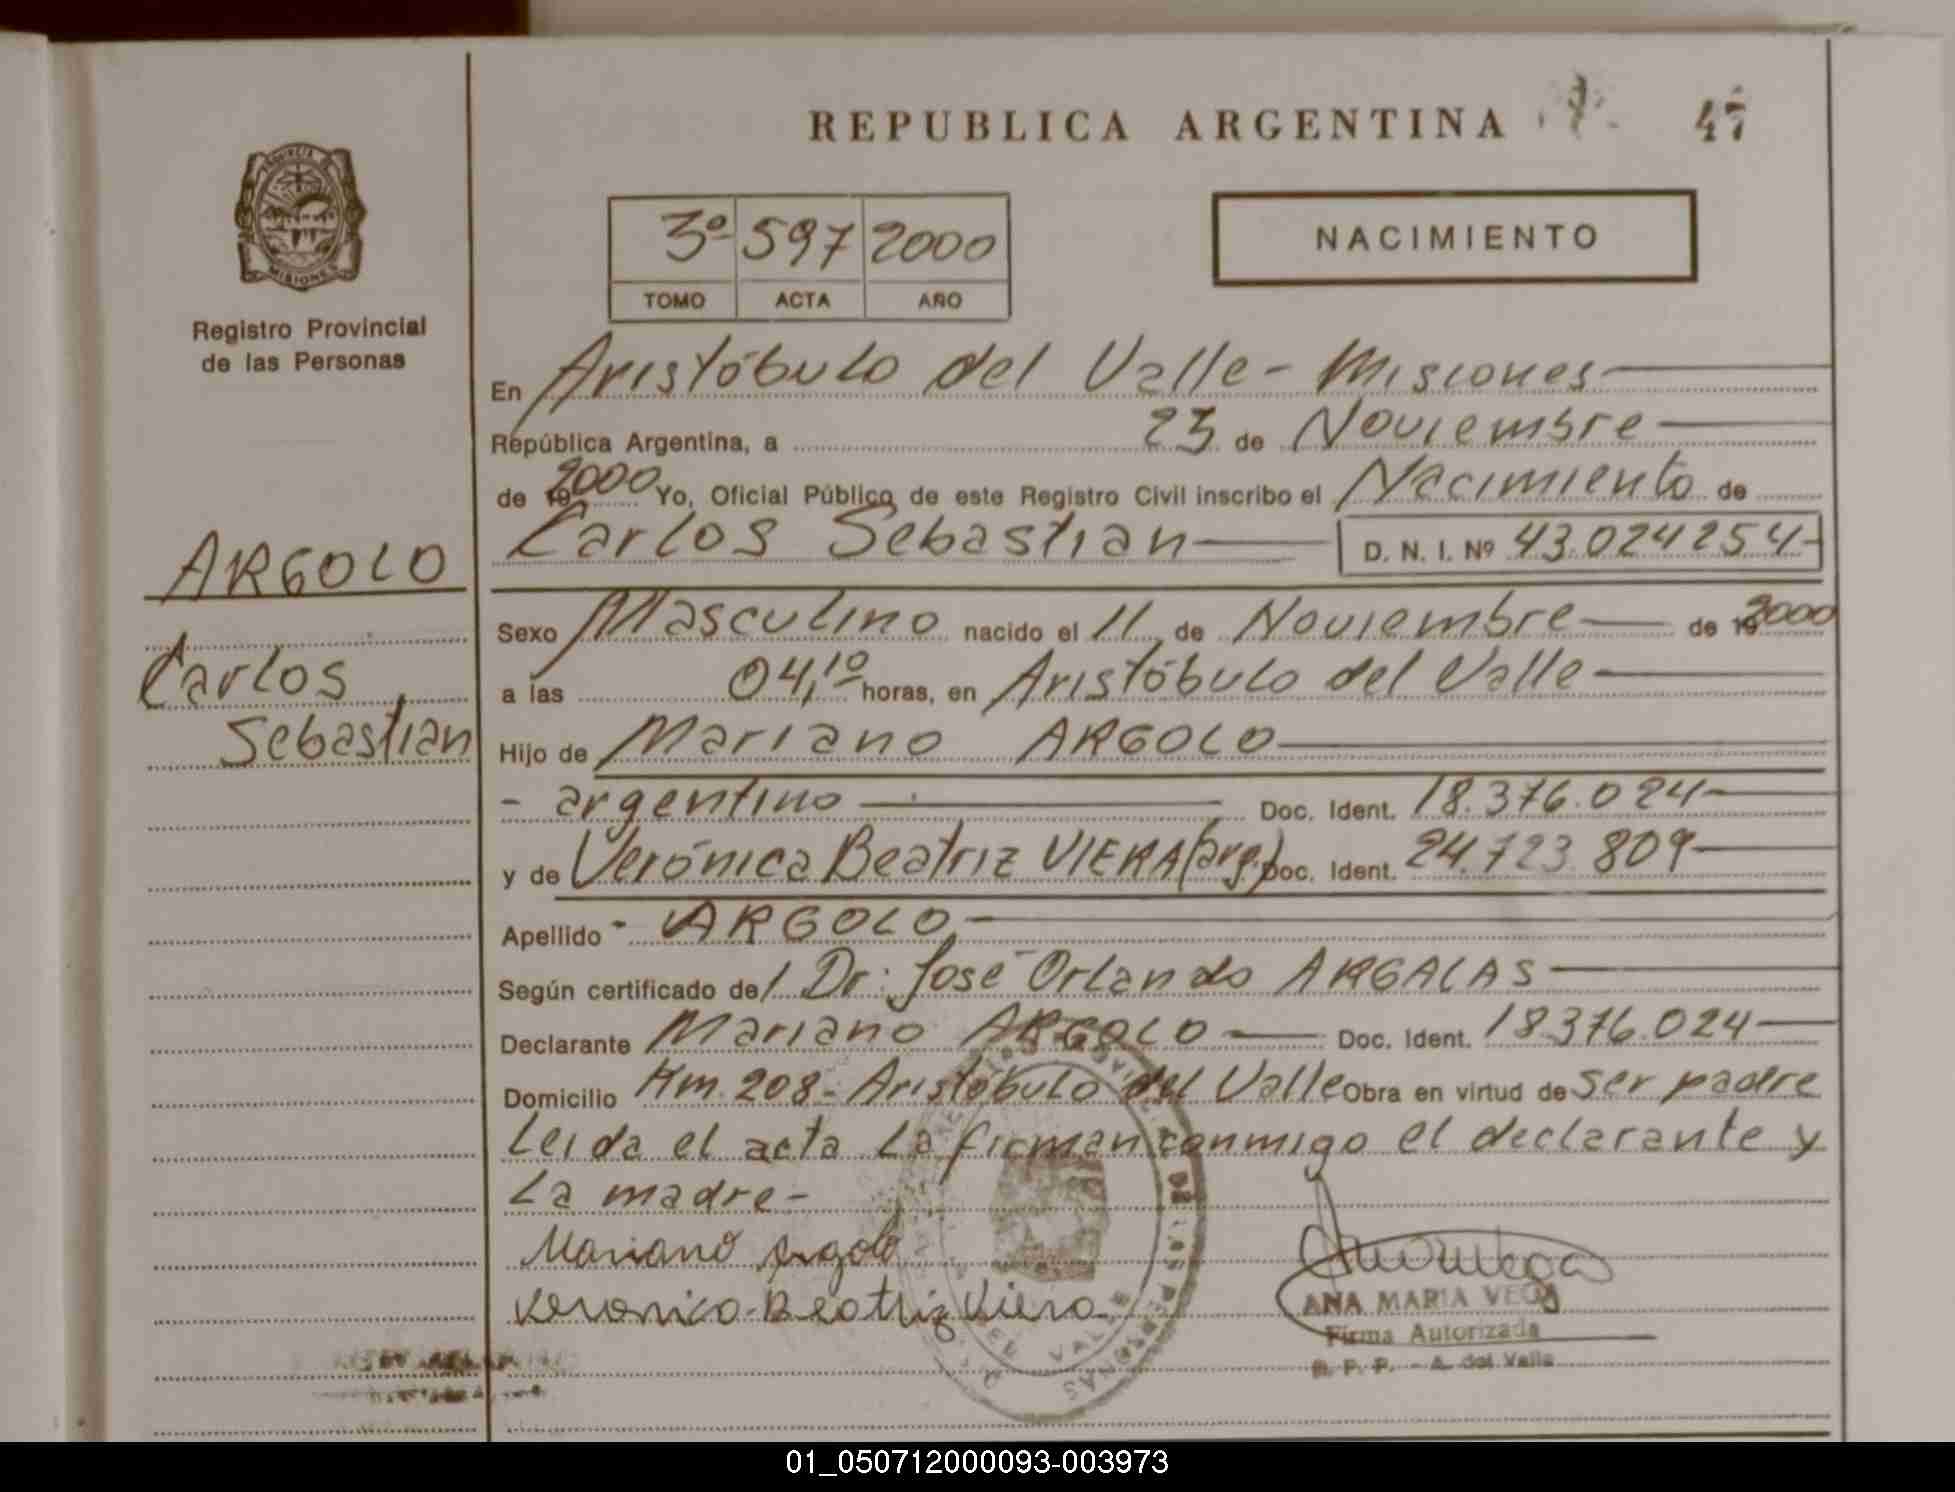 REPUBLICA ARGENTINA
47
PROVINCIA DE
MISIONES
Registro Provincial
de las Personas
3º 597 2000
TOMO ACTA AÑO
NACIMIENTO
En Aristóbulo del Valle - Misiones
República Argentina, a 23 de Noviembre
de 2000 Yo, Oficial Público de este Registro Civil inscribo el Nacimiento de
Carlos Sebastian D. N. I. Nº 43.024254-
ARGOLO
Carlos
Sebastian
Sexo Masculino nacido el 11 de Noviembre de 2000
a las 04,10 horas, en Aristóbulo del Valle
Hijo de Mariano ARGOLO
- argentino Doc. Ident. 18.376.024
y de Verónica Beatriz VIERA (arg.) Doc. Ident. 24.723.809
Apellido - ARGOLO
Según certificado del Dr: José Orlando ARGALAS
Declarante Mariano ARGOLO Doc. Ident. 18376.024
Domicilio Km. 208 - Aristóbulo del Valle Obra en virtud de ser padre
Leida el acta la firman conmigo el declarante y
la madre -
Mariano Argolo
Veronica Beatriz Viera
ANA MARIA VEGA
Firma Autorizada
R. P. P. - A. del Valle
DE LAS PERSONAS
DEL VALLE
01_050712000093-003973